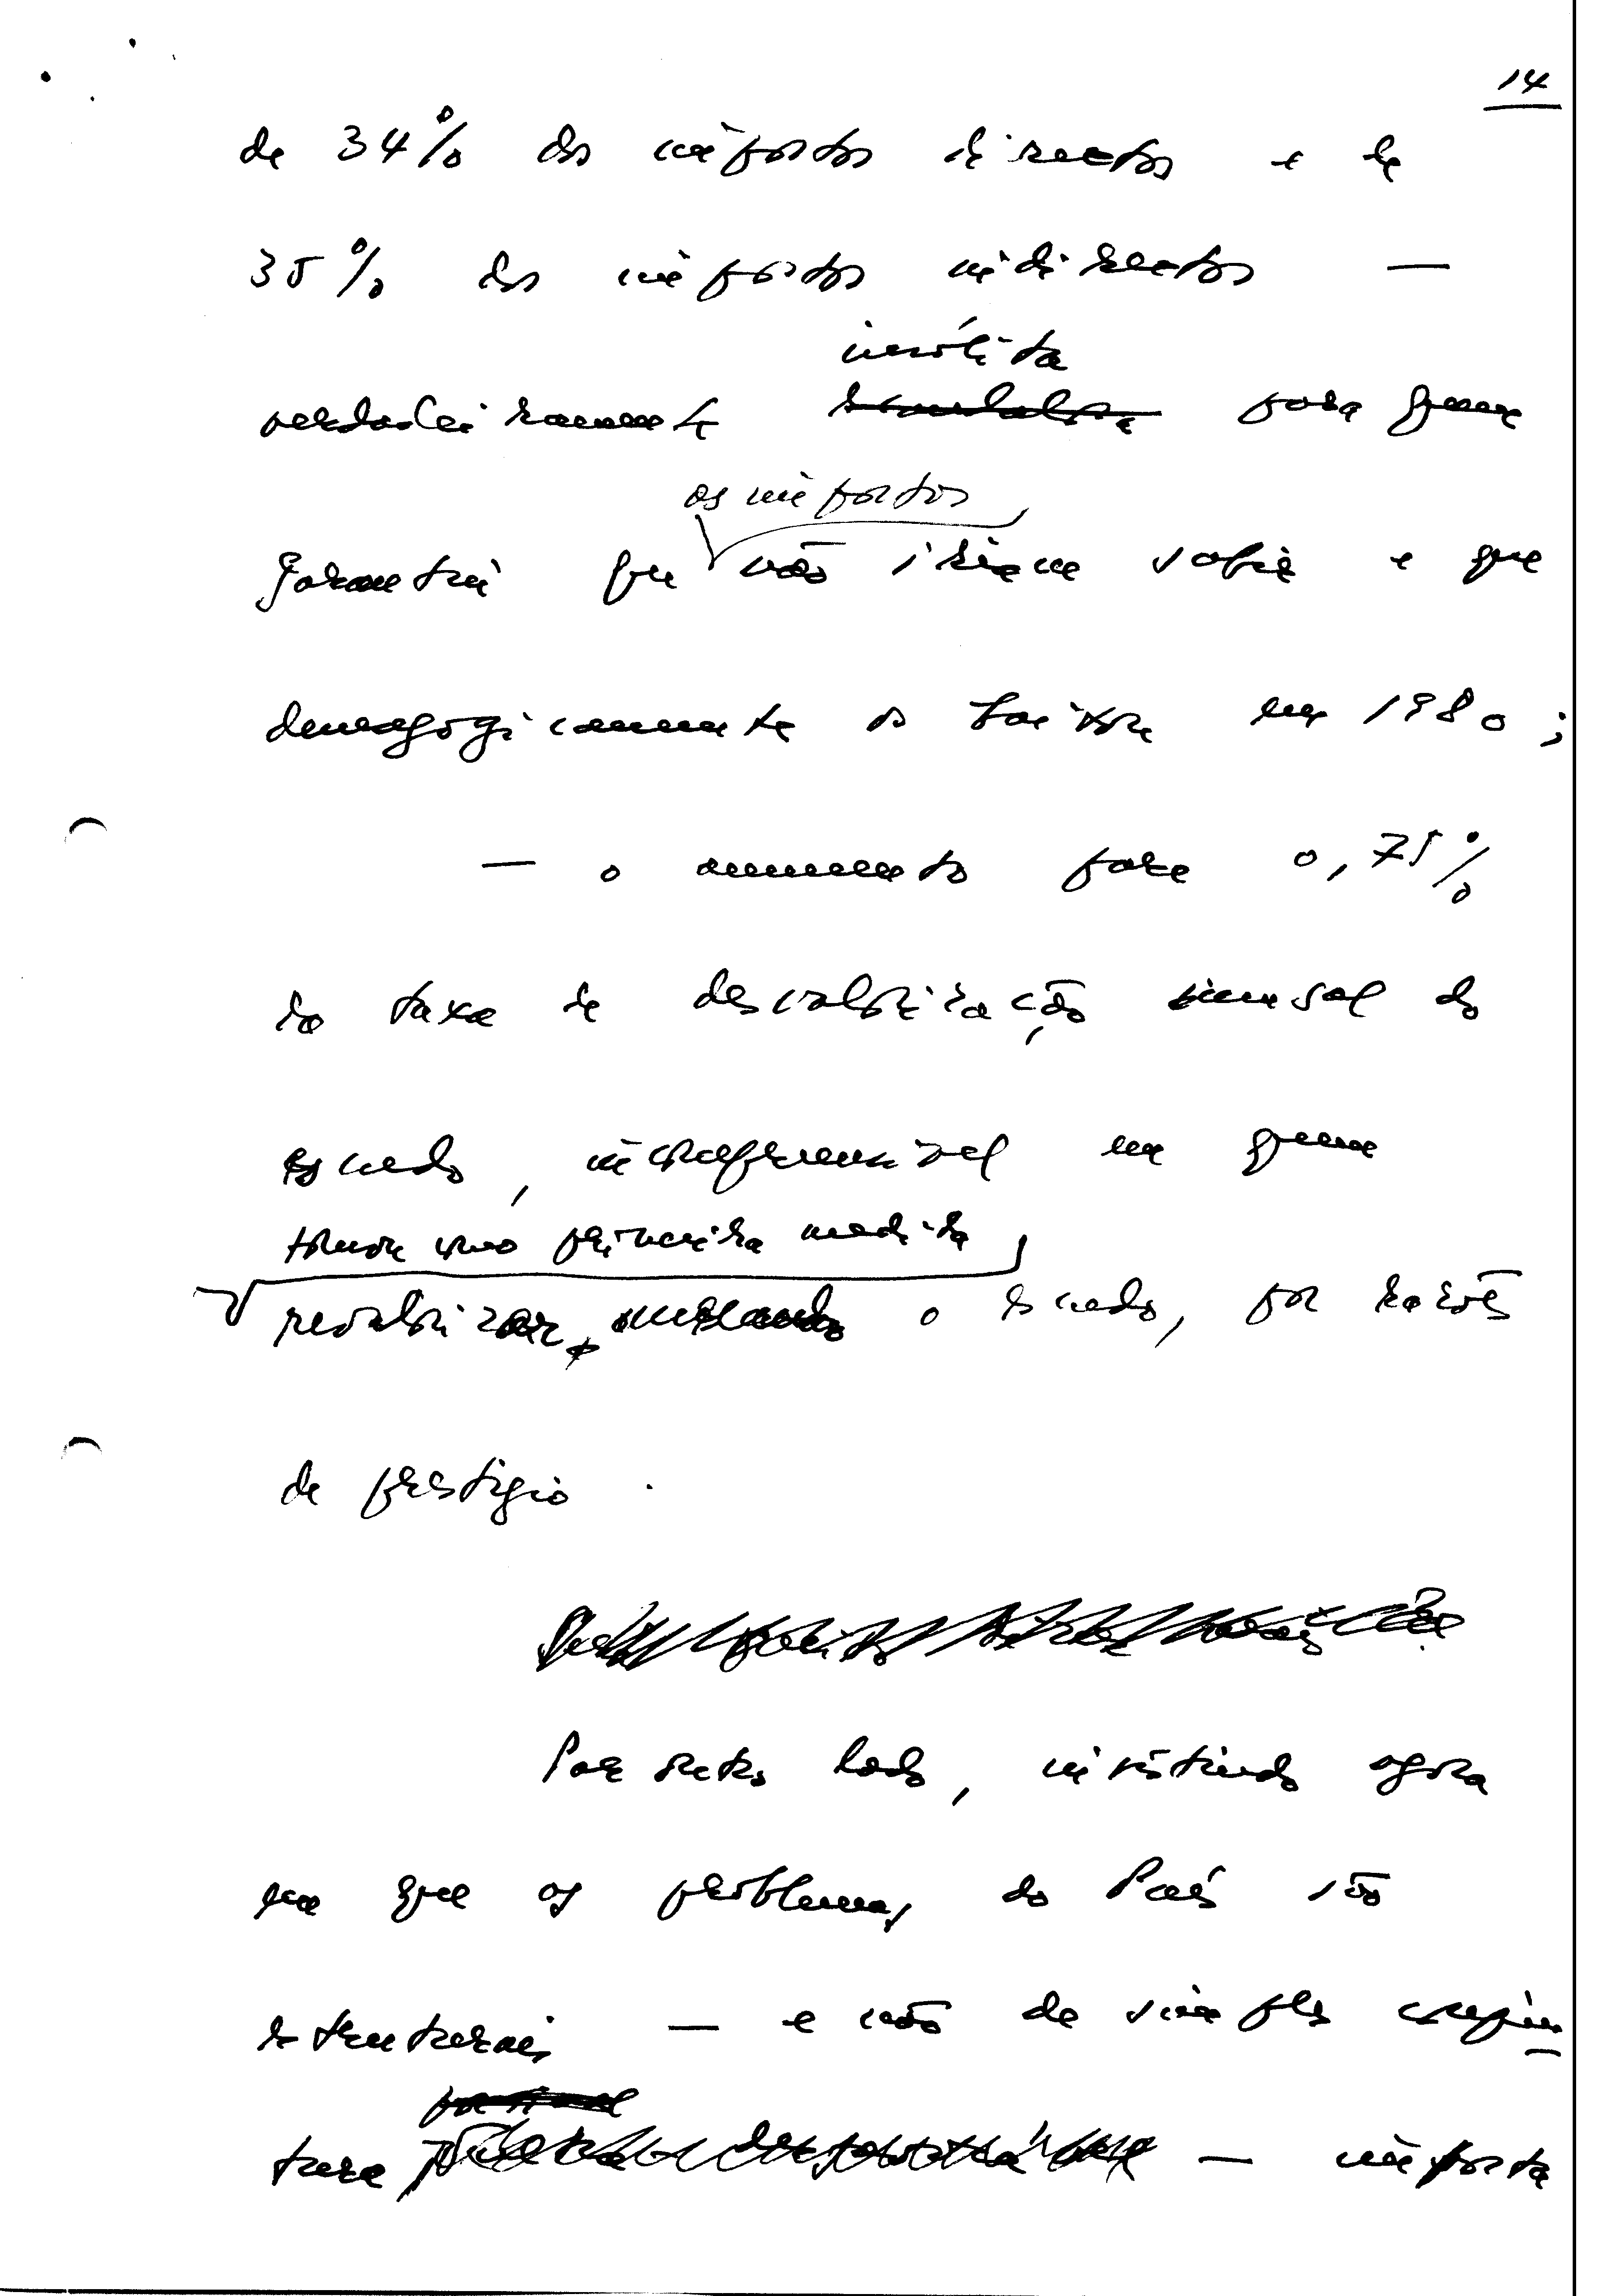 14
de 34% dos impostos directos e de
35% dos impostos indirectos —
insólita
verdadeiramente para quem
os impostos
garantiu que não iriam subir e que
demagogicamente os baixou em 1980;
— o aumento para 0,75%
da taxa de desvalorização mensal do
escudo, incompreensível em quem
tomou como primeira medida
revalorizar o escudo, por razões
de prestígio.
Por outro lado, insistindo agora
em que os problemas do País são
estruturais — e não de simples conjun
tura — importa